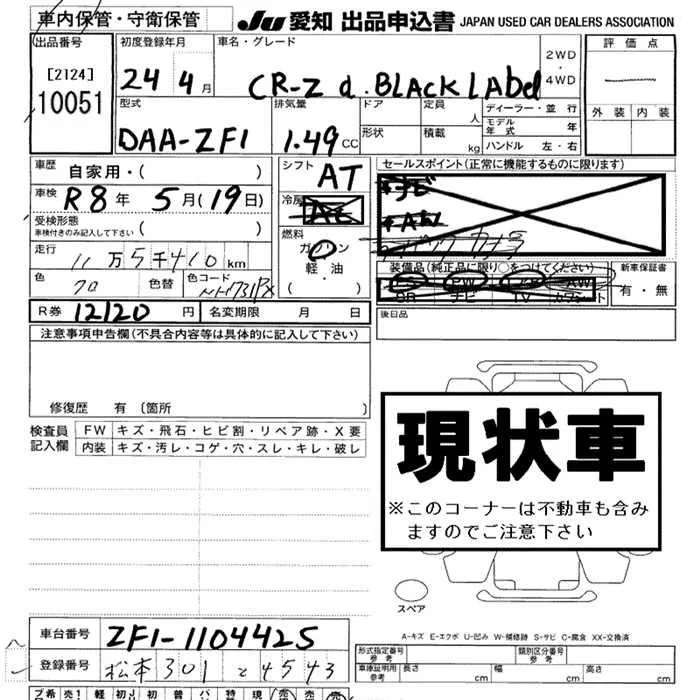 車内保管・守衛保管
JU 愛知 出品申込書 JAPAN USED CAR DEALERS ASSOCIATION
出品番号
[2124]
10051
初度登録年月
24 4月
車名・グレード
CR-Z α.BLACK LAbel
2WD
・
4WD
評価点
外装 内装
型式
DAA-ZF1
排気量
1.49CC
ドア
定員
人
形状
積載
kg
ディーラー・並行
モデル年式
年
ハンドル 左・右
車歴 自家用・( )
車検 R8年 5月(19日)
受検形態
車検付きのみ記入して下さい ( )
走行
11万5千410km
色
色替
色コード
シフト
AT
冷房
燃料
ガソリン
軽油
( )
セールスポイント(正常に機能するものに限ります)
ナビ
装備品(純正品に限り○をつけてください)
PS PW エアB AW
SR ナビ TV カワシート
新車保証書
有・無
後日品
R券 12120円
名変期限 月 日
注意事項申告欄(不具合内容等は具体的に記入して下さい)
修復歴 有〔箇所 〕
検査員記入欄
FW キズ・飛石・ヒビ割・リペア跡・X要
内装 キズ・汚レ・コゲ・穴・スレ・キレ・破レ
現状車
※このコーナーは不動車も含み
ますのでご注意下さい
スペア
A-キズ E-エクボ U-凹み W-補修跡 S-サビ C-腐食 XX-交換済
車台番号 ZF1-1104425
登録番号 松本 301 と 4543
形式指定番号
参考
類別区分番号
参考
車庫証明用
参考
長さ cm 幅 cm 高さ cm